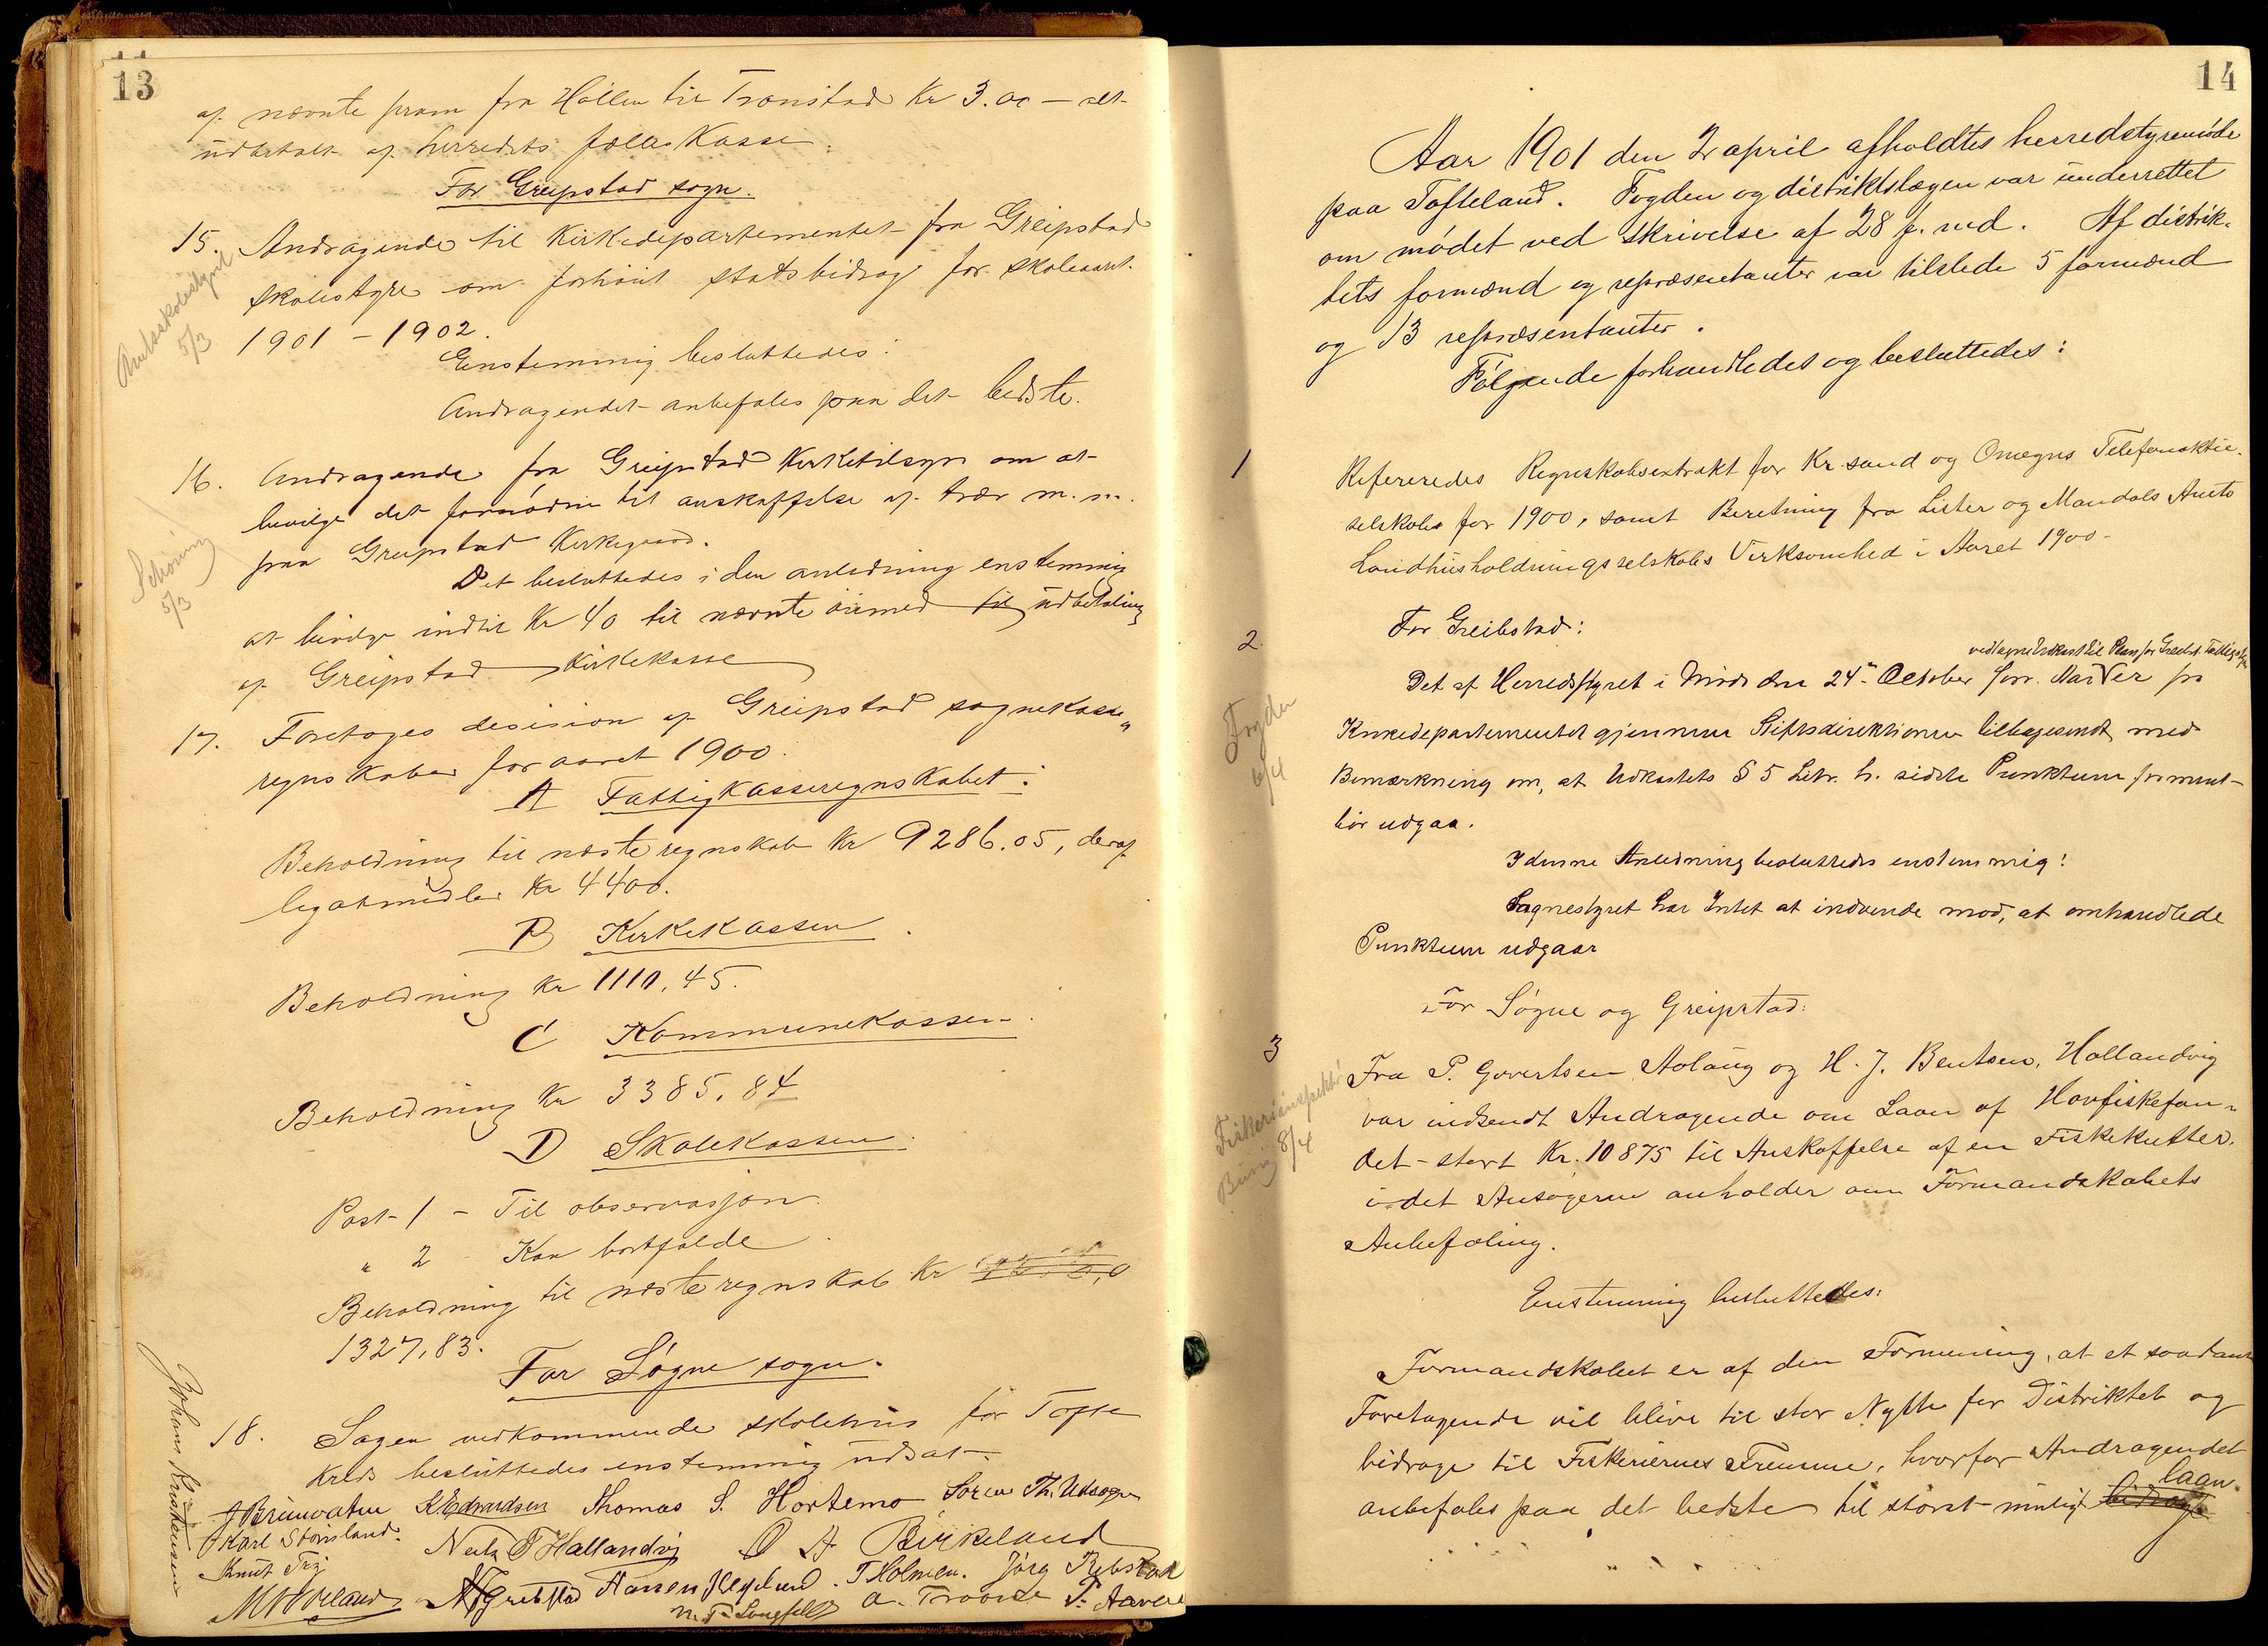 13
af nævnte pram fra Høllen til Tronstad Kr 3.00 – alt
udbetalt af herredets fælleskasse.
For Greipstad sogn.
15. Andragende til Kirkedepartementet fra Greipstad
skolestyre om forhöiet statsbidrag for skoleaaret
1901 – 1902.
Amtsskolestyret
5/3
Enstemmig besluttedes:
Andragendet anbefales paa det bedste.
16. Andragende fra Greipstad Kirketilsyn om at
bevilge det fornødne til anskaffelse af trær m.m.
paa Greipstad Kirkegaard.
Schöning
5/3
Det besluttedes i den anledning enstemmig
at bevilge indtil Kr 40 til nævnte öiemed til udbetaling
af Greipstad Kirkekasse
17. Foretoges desision af Greipstad sognekasse"
regnskaber for aaret 1900.
A Fattigkasseregnskabet:
Beholdning til næste regnskab Kr 9286.05, deraf
legatmidler Kr 4400.
B Kirkekassen.
Beholdning Kr 1110,45.
C Kommunekassen.
Beholdning Kr 3385,84
D Skolekassen.
Post 1 – Til observasjon.
" 2 Kan bortfalde.
Beholdning til næste regnskab Kr
1327,83.
For Søgne sogn.
18. Sagen vedkommende skolehus for Tofte
kreds besluttedes enstemmig udsat.
J Brunvatne K Edvardsen Thomas S. Hortemo Søren Th. Udsogn
Karl Stövsland. Neils T Hallandvig O A Birkeland
Knut Try
N Greibstad Aanen Heglund. T Holmen. Jörg Rebstad
N. T. Langfeldt A. Traase P. Aavere
Johans Kristensen
14
Aar 1901 den 2 april afholdtes herredstyremöde
paa Tofteland. Fogden og distriktslægen var underrettet
om mödet ved skrivelse af 28 f. md. Af distrik-
tets formænd og repræsentanter var tilstede 5 formænd
og 13 repræsentanter.
Følgende forhandledes og besluttedes:
1 Refereredes Regnskabsextrakt for Kr.sand og Omegns Telefonaktie-
selskab for 1900, samt Beretning fra Lister og Mandals Amts
Landhusholdningsselskabs Virksomhed i Aaret 1900.
2. For Greibstad:
vedtagne Udkast til Plan for Greibst. Fattigv
Det af Herredsstyret i Møde den 24de October forr. Aar V er fra
Kirkedepartementet gjennem Stiftsdirektionen tilbagesendt med
Bemærkning om, at Udkastets § 5 Litr. h. sidste Punktum formentl
bör udgaa.
Fogden
6/4
I denne Anledning besluttedes enstemmig:
Sognestyret har Intet at indvende mod, at omhandlede
Punktum udgaar
For Søgne og Greipstad:
3 Fra P. Govertsen Aolaug og H. J. Bentsen, Hallandvig
var indsendt Andragende om Laan af Havfiskefon-
det – stort Kr. 10875 til Anskaffelse af en Fiskekutter,
i det Ansøgerne anholder om Formandskabets
Anbefaling.
Fiskeriinspektör
8/4
Enstemmig besluttedes:
Formandskabet er af den Formening, at et saadant
Foretagende vil blive til stor Nytte for Distriktet og
bidrage til Fiskeriernes Fremme, hvorfor Andragendet
anbefales paa det bedste til störst muligt bidrag laan.